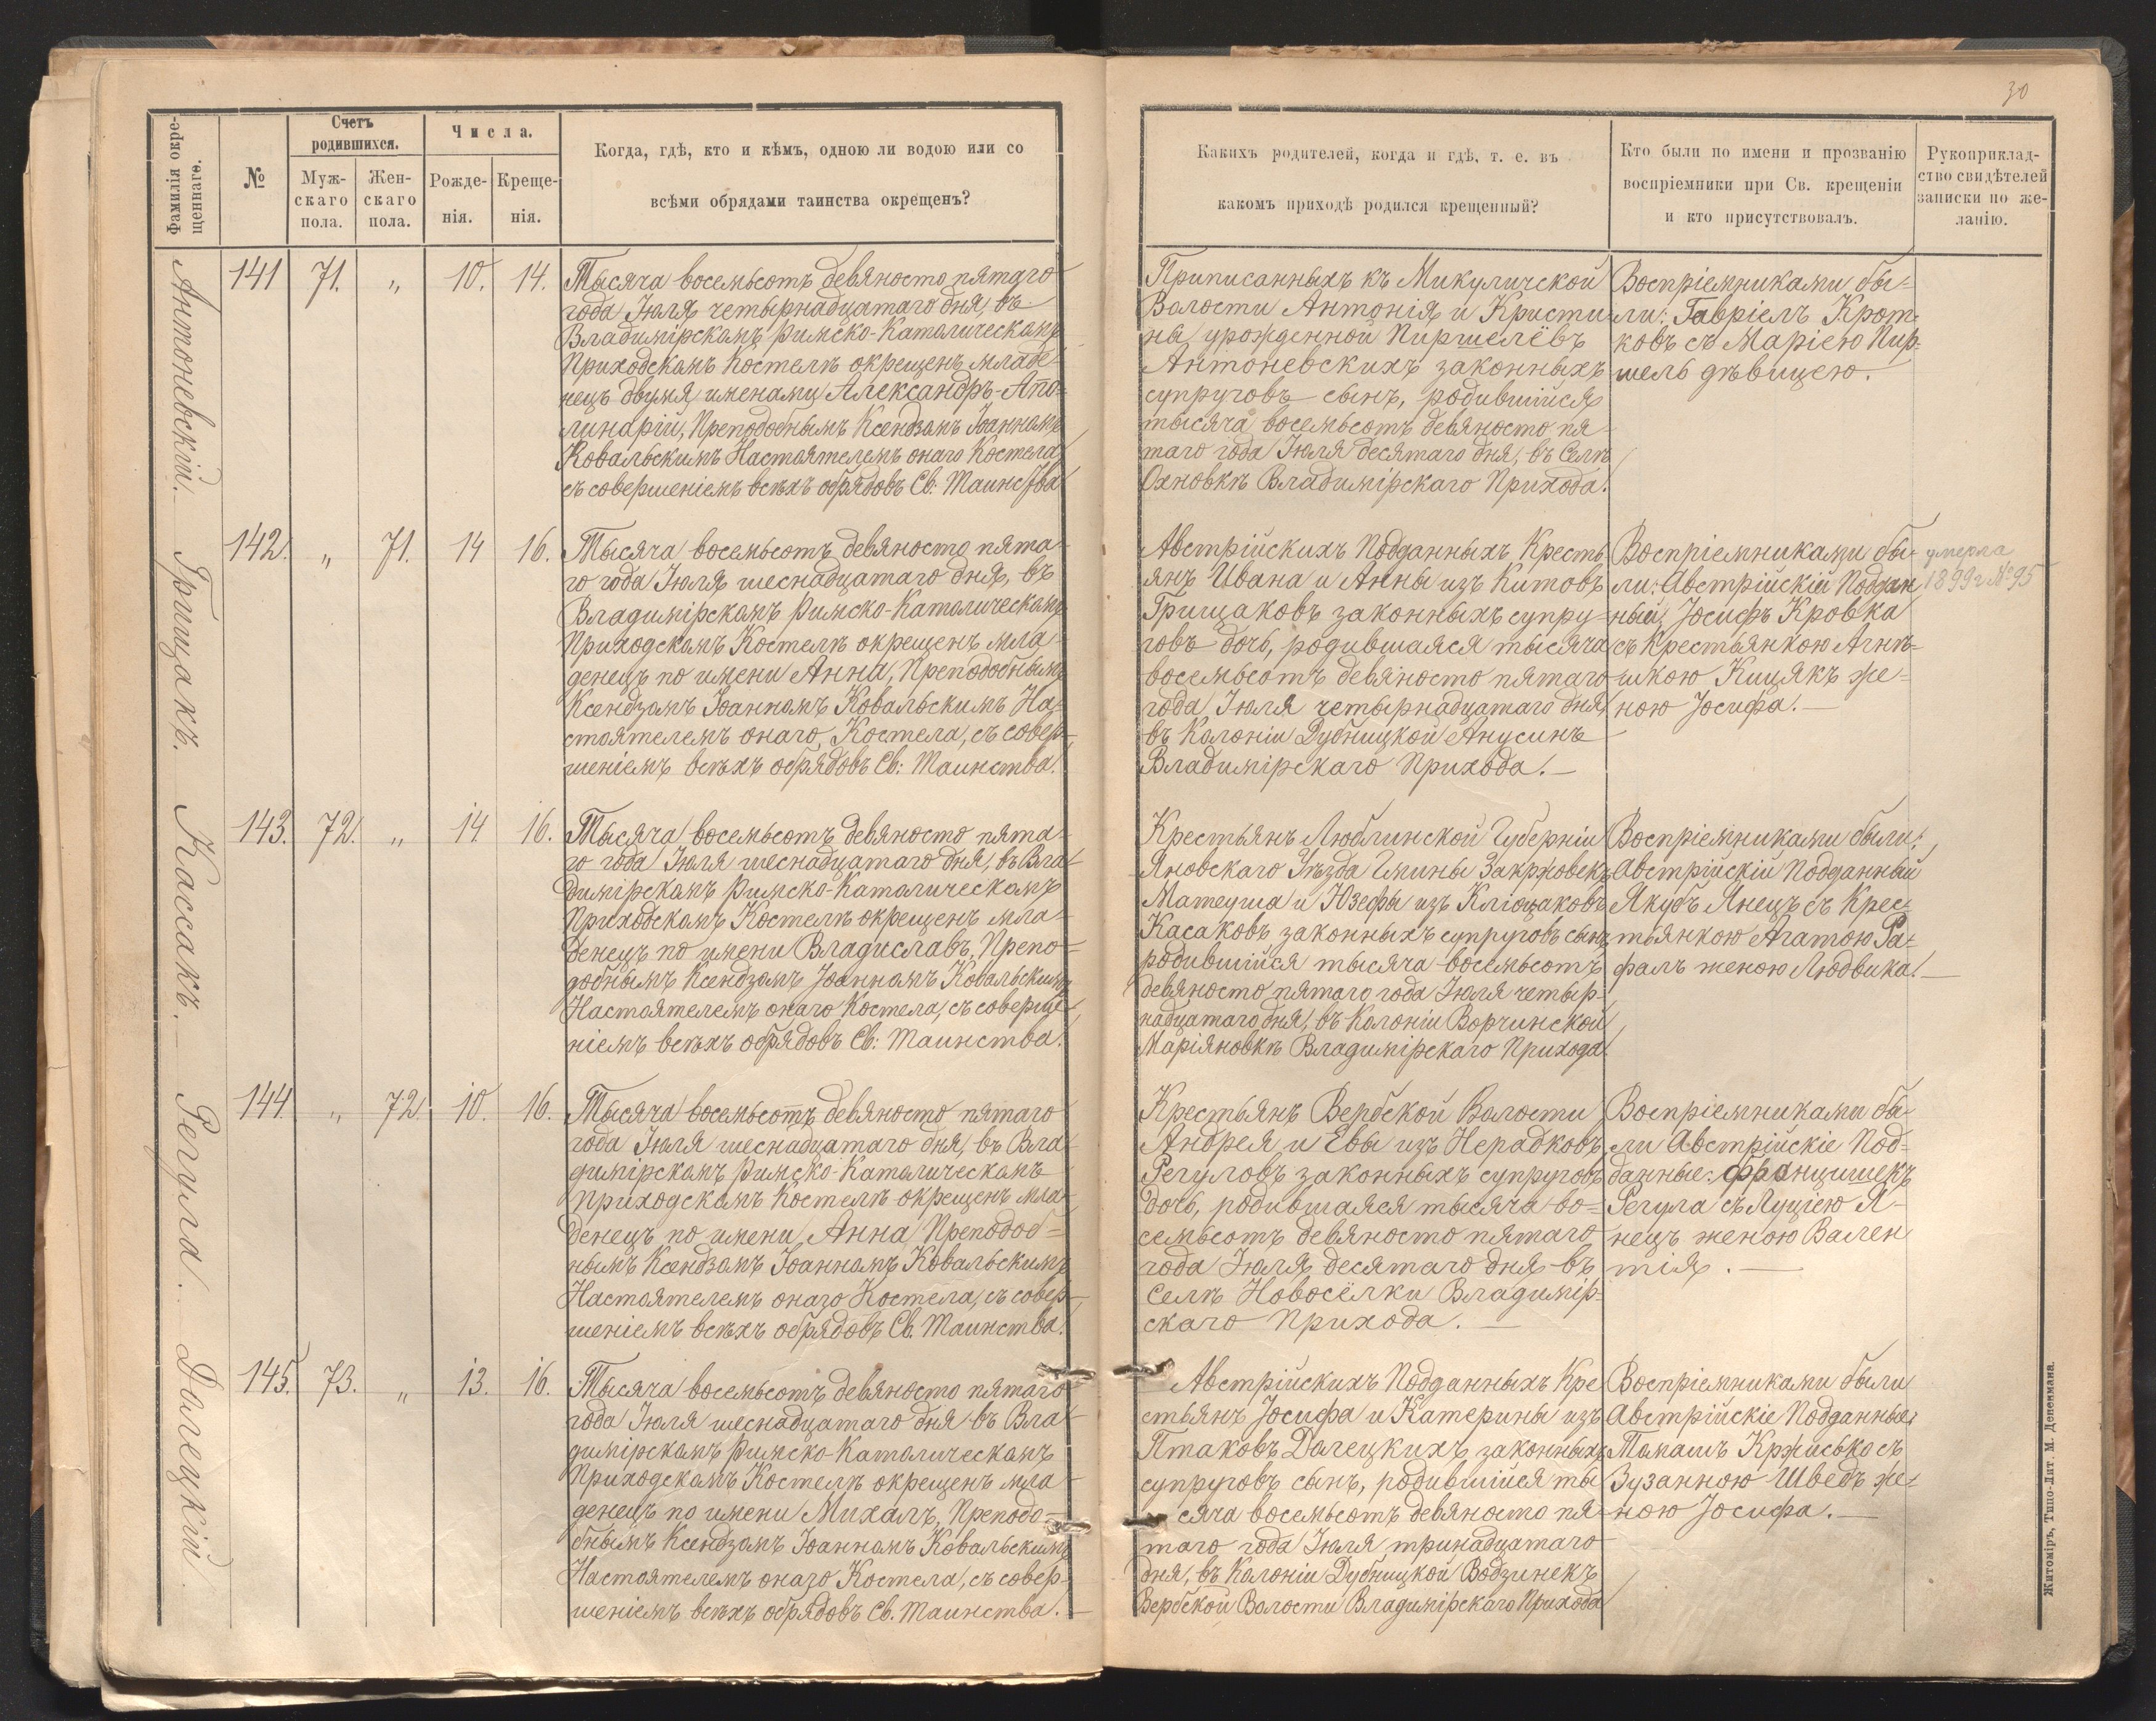 30
Фамилія окре-
щеннаго.
№
Счетъ
родившихся.
Муж-
скаго
пола.
Жен-
скаго
пола.
Числа.
Рожде-
нія.
Креще-
нія.
Когда, гдѣ, кто и кѣмъ, одною ли водою или со
всѣми обрядами таинства окрещенъ?
Какихъ родителей, когда и гдѣ, т. е. въ
какомъ приходѣ родился крещенный?
Кто были по имени и прозванію
воспріемники при Св. крещеніи
и кто присутствовалъ.
Рукоприклад-
ство свидѣтелей
записки по же-
ланію.
Антоневскій.
141 71. „ 10. 14.
Тысяча восемьсотъ девяносто пятаго
года Іюля четырнадцатаго дня, въ
Владимірскомъ Римско-Католическомъ
Приходскомъ Костелѣ окрещенъ младе-
нецъ двумя именами Александръ-Апо-
линарій, Преподобнымъ Ксендзомъ Іоанномъ
Ковальскимъ Настоятелемъ онаго Костела
съ совершеніемъ всѣхъ обрядовъ Св: Таинства
Приписанныхъ къ Микуличской
Волости Антонія и Кристи-
ны урожденной Пиршелёвъ
Антоневскихъ законныхъ
супруговъ сынъ, родившійся
тысяча восемьсотъ девяносто пя-
таго года Іюля десятаго дня, въ Селѣ
Охновкѣ Владимірскаго Прихода.
Воспріемниками бы-
ли: Гавріелъ Крот-
ковъ съ Маріею Пир-
шель дѣвицею.
Грицакъ.
142. „ 71. 14 16.
Тысяча восемьсотъ девяносто пята-
го года Іюля шеснадцатаго дня, въ
Владимірскомъ Римско-Католическомъ
Приходскомъ Костелѣ окрещенъ мла-
денецъ по имени Анна, Преподобнымъ
Ксендзомъ Іоанномъ Ковальскимъ На-
стоятелемъ онаго Костела, съ совер-
шеніемъ всѣхъ обрядовъ Св: Таинства.
Австрійскихъ Подданныхъ Кресть-
янъ Ивана и Анны изъ Китовъ
Грицаковъ законныхъ супру-
говъ дочь, родившаяся тысяча
восемьсотъ девяносто пятаго
года Іюля четырнадцатаго дня
въ Колоніи Дубницкой Анусинъ
Владимірскаго Прихода.
Воспріемниками бы-
ли: Австрійскій Поддан-
ный Іосифъ Кровка
съ Крестьянкою Агнѣ-
шкою Кицякъ же-
ною Іосифа.
умерла
1899 г № 95
Кассакъ.
143. 72. „ 14 16.
Тысяча восемьсотъ девяносто пята-
го года Іюля шеснадцатаго дня, въ Вла-
димірскомъ Римско-Католическомъ
Приходскомъ Костелѣ окрещенъ мла-
денецъ по имени Владиславъ, Препо-
добнымъ Ксендзомъ Іоанномъ Ковальскимъ
Настоятелемъ онаго Костела, съ соверше-
ніемъ всѣхъ обрядовъ Св: Таинства.
Крестьянъ Люблинской Губерніи
Яновскаго Уѣзда Гмины Закржовекъ
Матеуша и Юзефы изъ Кліоцаковъ
Касаковъ законныхъ супруговъ сынъ
родившійся тысяча восемьсотъ
девяносто пятаго года Іюля четыр-
надцатаго дня, въ Колоніи Ворчинской
Маріяновкѣ Владимірскаго Прихода.
Воспріемниками были:
Австрійскій Подданный
Якубъ Янецъ съ Крес-
тьянкою Агатою Ра-
фалъ женою Людвика.
Регула.
144. „ 72. 10. 16.
Тысяча восемьсотъ девяносто пятаго
года Іюля шеснадцатаго дня, въ Вла-
димірскомъ Римско-Католическомъ
Приходскомъ Костелѣ окрещенъ мла-
денецъ по имени Анна Преподоб-
нымъ Ксендзомъ Іоанномъ Ковальскимъ
Настоятелемъ онаго Костела, съ совер-
шеніемъ всѣхъ обрядовъ Св. Таинства.
Крестьянъ Вербской Волости
Андрея и Евы изъ Нерадковъ
Регуловъ законныхъ супруговъ
дочь, родившаяся тысяча во-
семьсотъ девяносто пятаго
года Іюля десятаго дня въ
Селѣ Новосёлки Владимір-
скаго Прихода.
Воспріемниками бы-
ли Австрійскіе Под-
данные: Францишекъ
Регула съ Луціею Я-
нецъ женою Вален
тія.
Далецкій
145. 73. „ 13. 16.
Тысяча восемьсотъ девяносто пятаго
года Іюля шеснадцатаго дня въ Вла-
димірскомъ Римско-Католическомъ
Приходскомъ Костелѣ окрещенъ мла-
денецъ по имени Михалъ, Преподо-
бнымъ Ксендзомъ Іоанномъ Ковальскимъ
Настоятелемъ онаго Костела, съ совер-
шеніемъ всѣхъ обрядовъ Св. Таинства.
Австрійскихъ Подданныхъ Кре
стьянъ Іосифа и Катерины изъ
Птаковъ Далецкихъ законныхъ
супруговъ сынъ, родившійся ты
сяча восемьсотъ девяносто пя-
таго года Іюля тринадцатаго
дня, въ Колоніи Дубницкой Водзинекъ
Вербской Волости Владимірскаго Прихода
Воспріемниками были
Австрійскіе Подданные:
Томашъ Кржисько съ
Зузанною Шведъ же-
ною Іосифа.
Житоміръ, Типо-Лит. М. Дененмана.